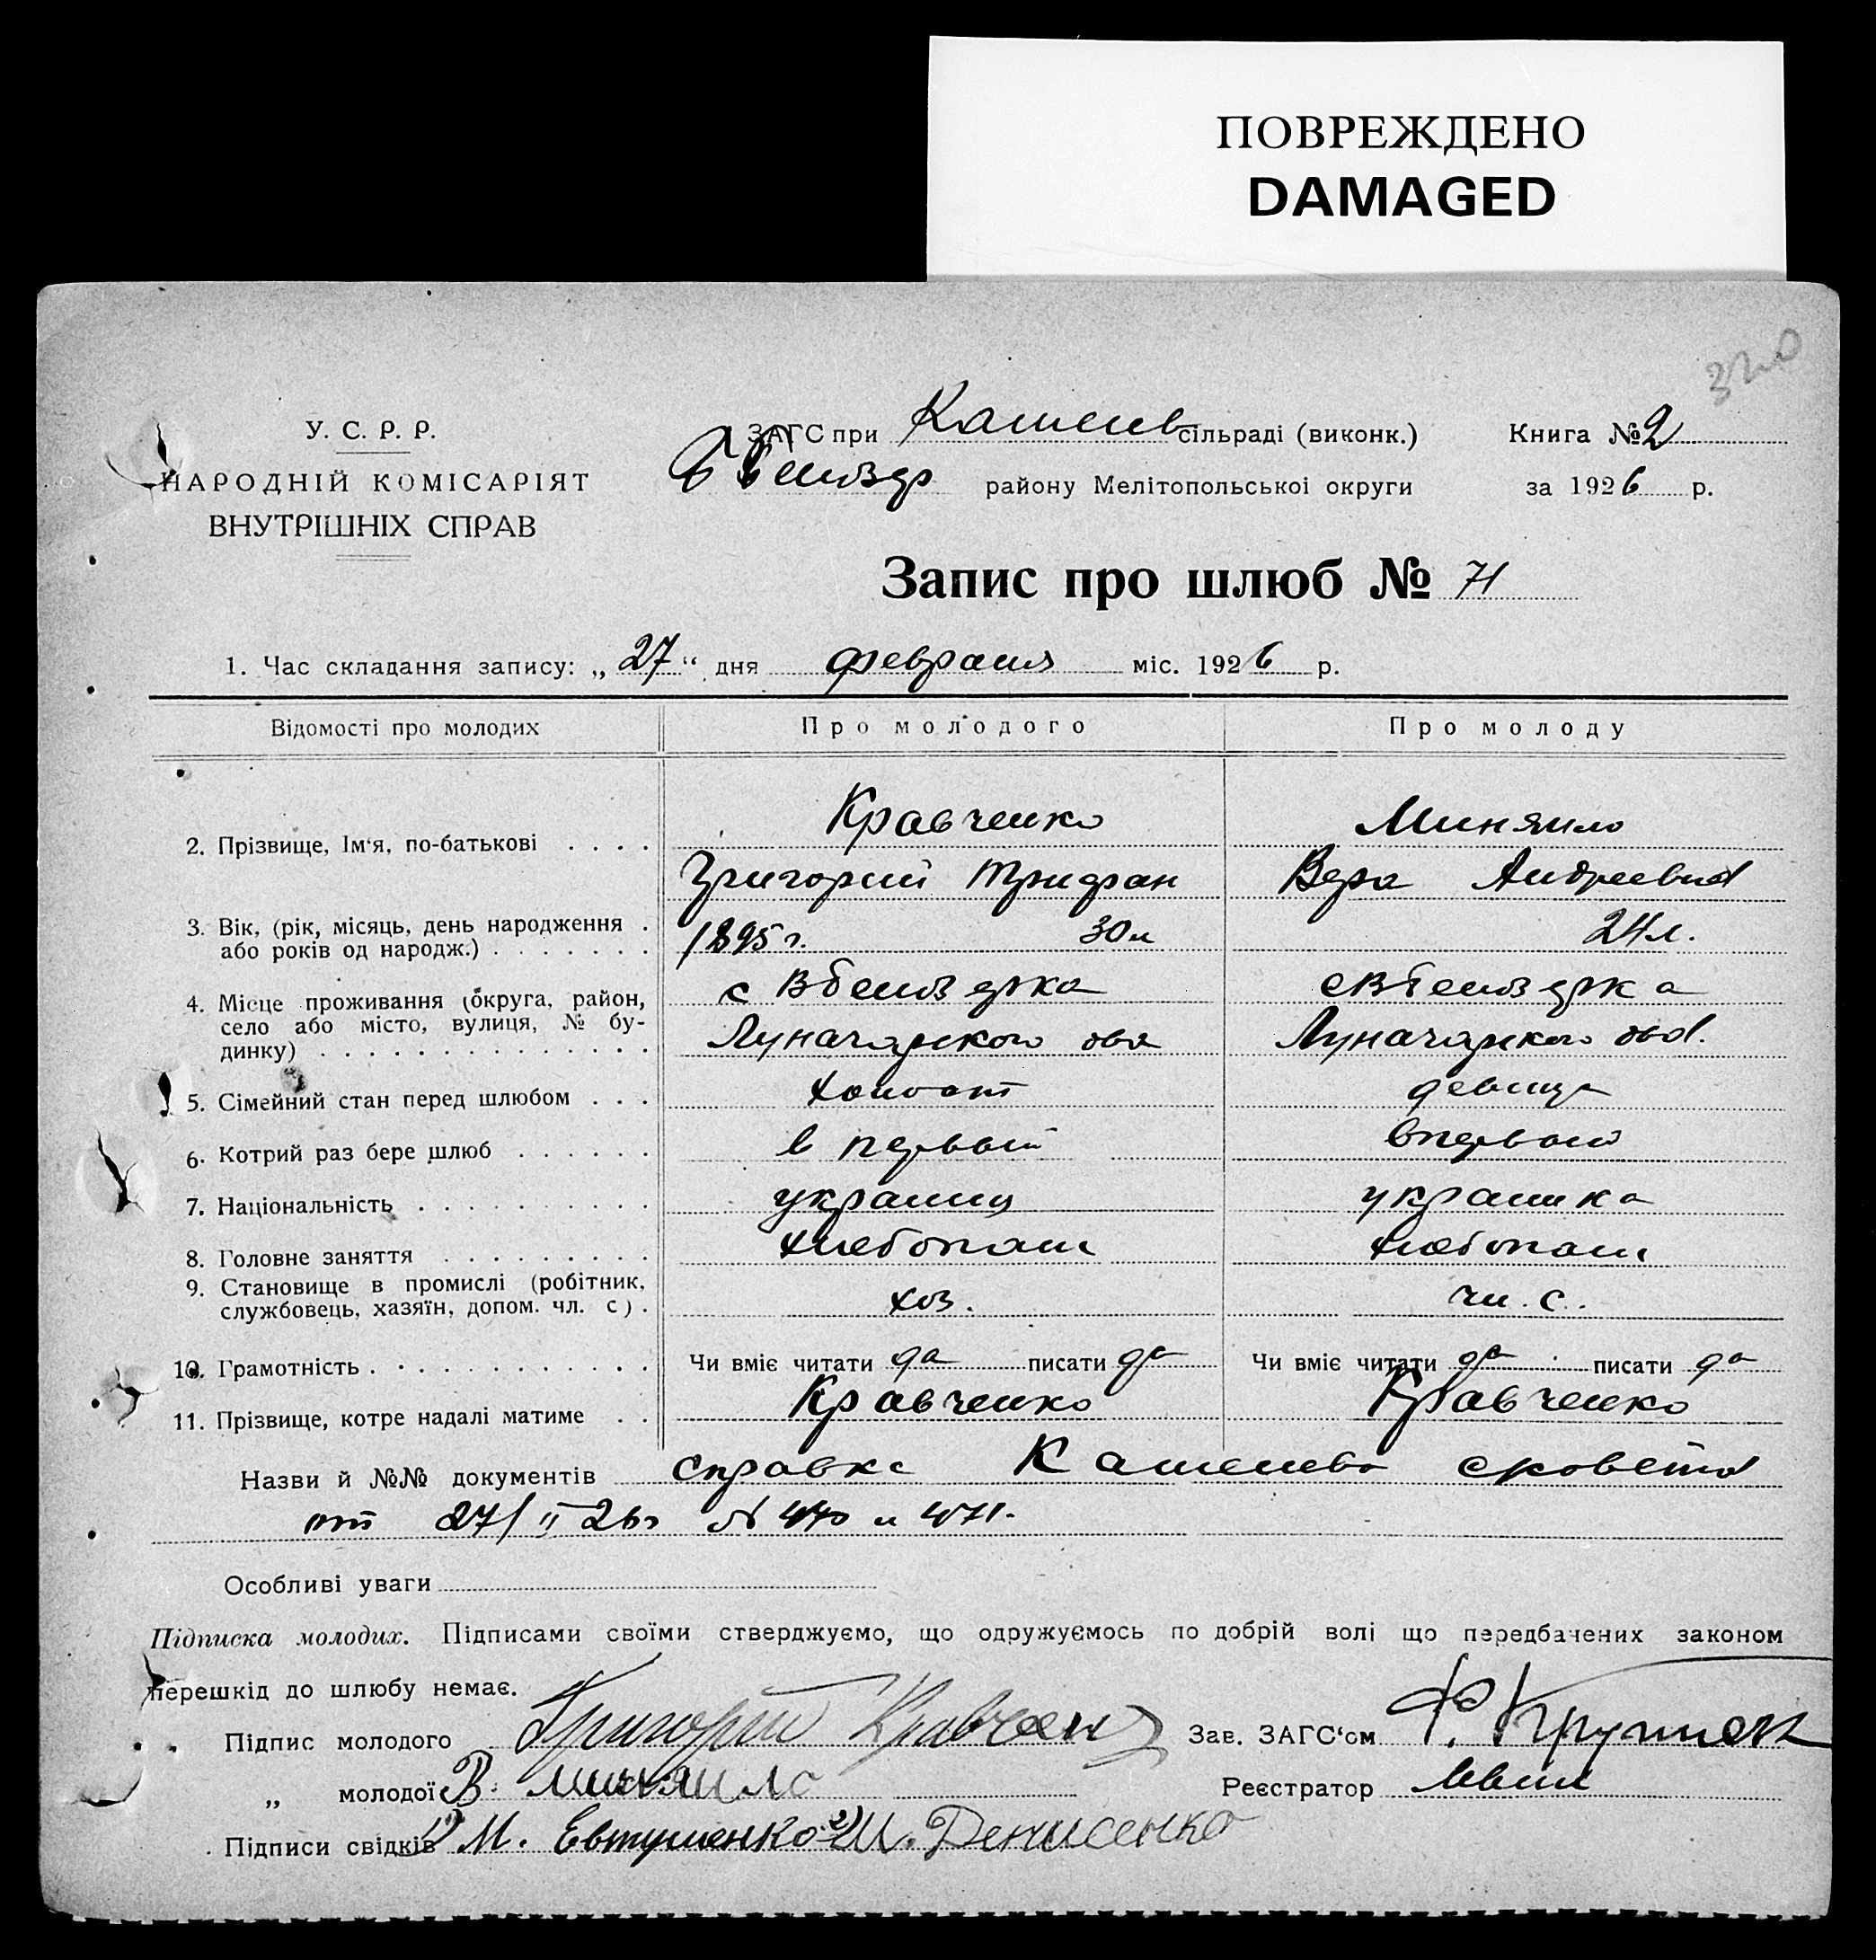 ПОВРЕЖДЕНО
DAMAGED
320
У. С. Р. Р.
НАРОДНІЙ КОМІСАРІЯТ
ВНУТРІШНІХ СПРАВ
ЗАГС при Каменев сільраді (виконк.) Книга № 2
району Мелітопольської округи за 1926 р.
Запис про шлюб № 71
1. Час складання запису: „27“ дня февраля міс. 1926 р.
Відомості про молодих Про молодого Про молоду
Кравченко Миняйло
2. Прізвище, Ім'я, по-батькові . . . .
Григорий Трифан Вера Андреевна
3. Вік, (рік, місяць, день народження .
або років од народж.) . . . . . . . 1895 г. 30 л 24 л.
4. Місце проживання (округа, район, с Вбелозерка с Вбелозерка
село або місто, вулиця, № бу-
динку) . . . . . . . . . . . . . . Луначарского Луначарского
5. Сімейний стан перед шлюбом . . . холост девица
6. Котрий раз бере шлюб . . . . . . в первый впервый
7. Національність . . . . . . . . . . украинц украинка
8. Головне заняття . . . . . . . . . хлебопаш хлебопаш
9. Становище в промислі (робітник,
службовець, хазяїн, допом. чл. с) . хоз. чл. с.
10. Грамотність . . . . . . . . . . . Чи вміє читати да писати да Чи вміє читати да писати да
11. Прізвище, котре надалі матиме . . Кравченко Кравченко
Назви й №№ документів справка Каменево
от 27/II 26 г № 470 и 471.
Особливі уваги
Підписка молодих. Підписами своїми стверджуємо, що одружуємось по добрій волі що передбачених законом
перешкід до шлюбу немає.
Підпис молодого Григорий Кравченко Зав. ЗАГС'ом
„ молодої В. Миняйло Реєстратор
Підписи свідків 1) М. Евтушенко 2) И. Денисенко